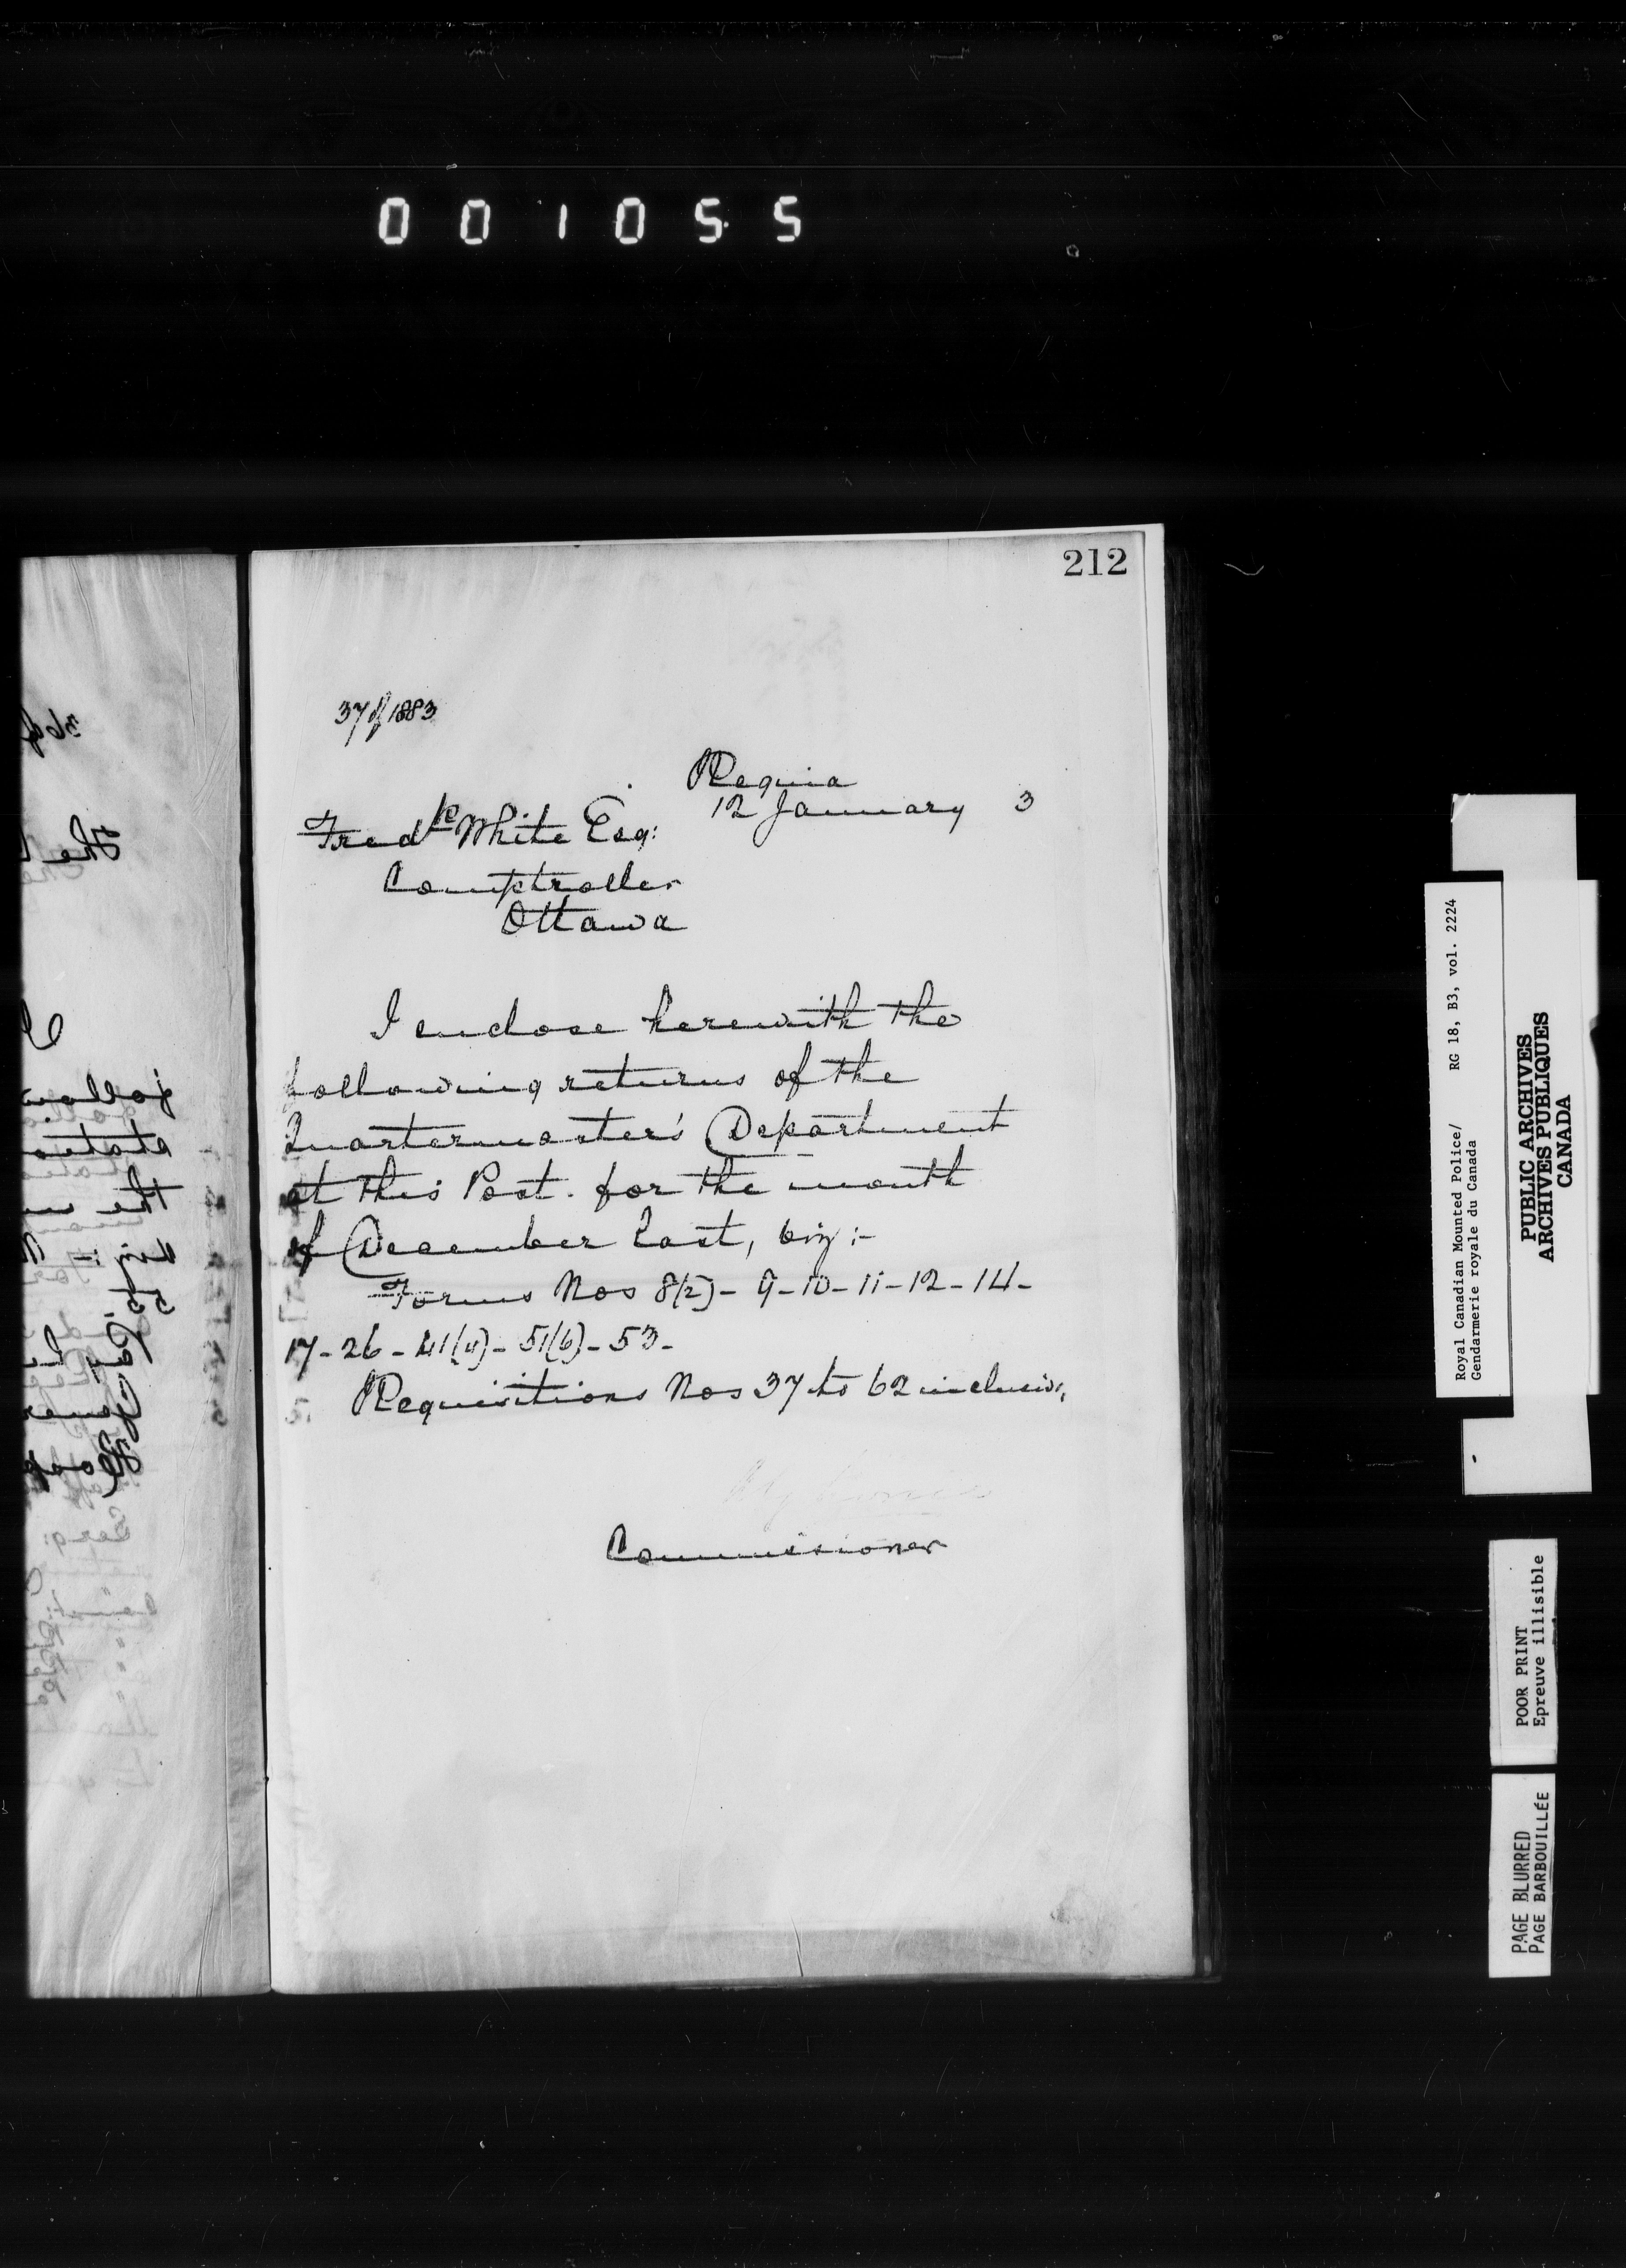 001055
212
37 of 1883
Regina
12 January 3
Fredk White Esq:
Comptroller
Ottawa
I enclose herewith the
following returns of the
Quartermaster's Department
at this Post. for the month
of December last, viz:-
Forms Nos 8(2)- 9-10-11-12-14-
17-26-41(4)-51(6)-53-
Requisitions Nos 37 to 62 inclusive,
Commissioner
Royal Canadian Mounted Police/ RG 18, B3, vol. 2224
Gendarmerie royale du Canada
PUBLIC ARCHIVES
ARCHIVES PUBLIQUES
CANADA
POOR PRINT
Epreuve illisible
PAGE BLURRED
PAGE BARBOUILLÉE